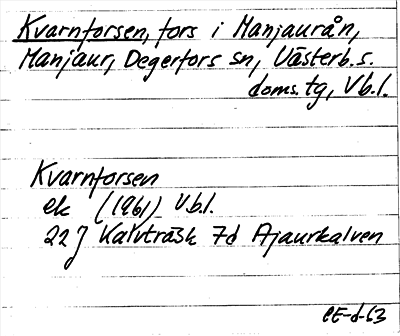 Kvarnforsen, fors i Manjaurån,
Manjaur, Degerfors sn, Västerb. s.
doms. tg, Vb.l.
Kvarnforsen
ek (1961) Vb.l.
22 J Kalvträsk 7d Ajaurkalven
CE-d-63